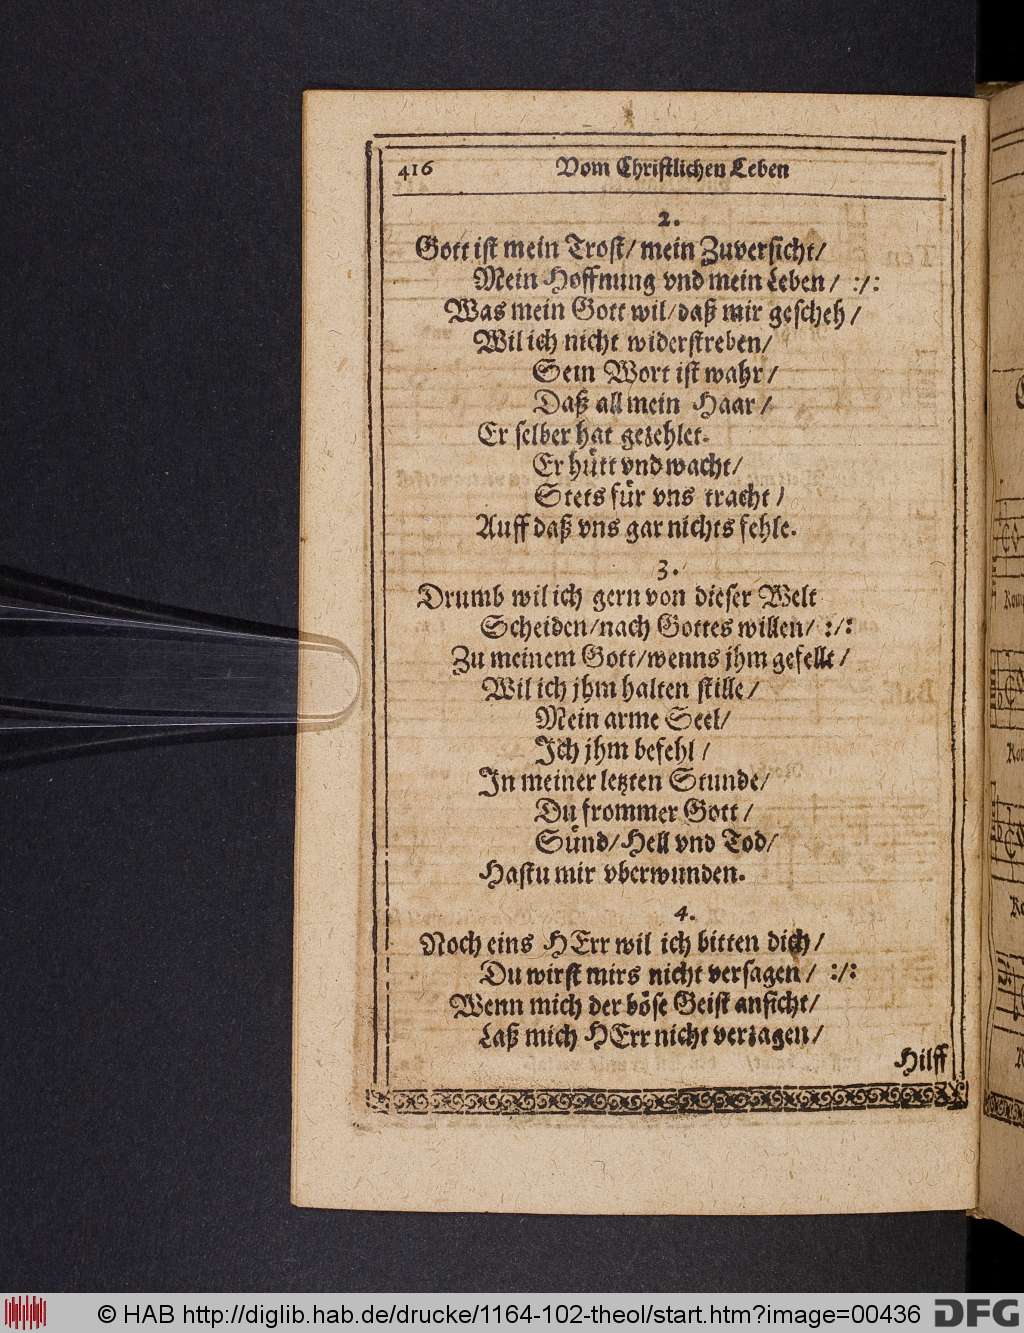 416 Vom Christlichen Leben
2.
Gott ist mein Trost/ mein Zuversicht/
Mein Hoffnung vnd mein Leben/ :/:
Was mein Gott wil/daß mir gescheh/
Wil ich nicht widerstreben/
Sein Wort ist wahr/
Daß all mein Haar/
Er selber hat gezehlet.
Er hütt vnd wacht/
Stets für vns tracht/
Auff daß vns gar nichts fehle.
3.
Drumb wil ich gern von dieser Welt
Scheiden/nach Gottes willen/ :/:
Zu meinem Gott/wenns jhm gefellt/
Wil ich jhm halten stille/
Mein arme Seel/
Ich jhm befehl/
In meiner letzten Stunde/
Du frommer Gott/
Sünd/Hell vnd Tod/
Hastu mir vberwunden.
4.
Noch eins HErr wil ich bitten dich/
Du wirst mirs nicht versagen/ :/:
Wenn mich der böse Geist anficht/
Laß mich HErr nicht verzagen/
Hilff
© HAB http://diglib.hab.de/drucke/1164-102-theol/start.htm?image=00436 DFG